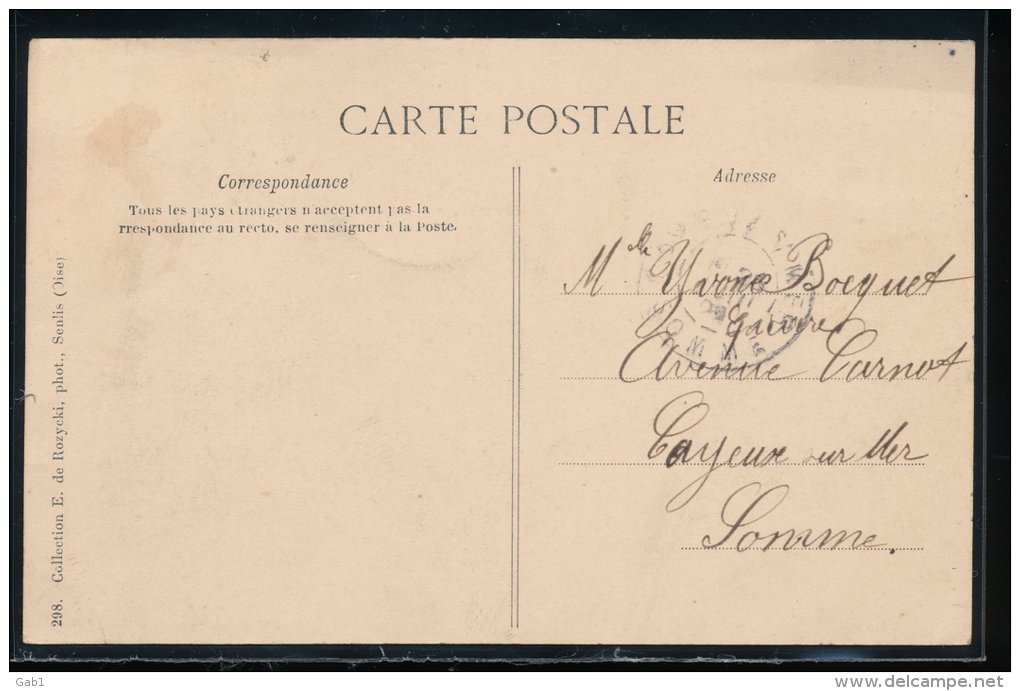 CARTE POSTALE
Correspondance
Tous les pays étrangers n'acceptent pas la
rrespondance au recto, se renseigner à la Poste.
Adresse
Mlle Yvonne Bocquet
Avenue Carnot
Cayeux sur Mer
Somme.
298. Collection E. de Rozycki, phot., Senlis (Oise)
Gab1
delcampe.net